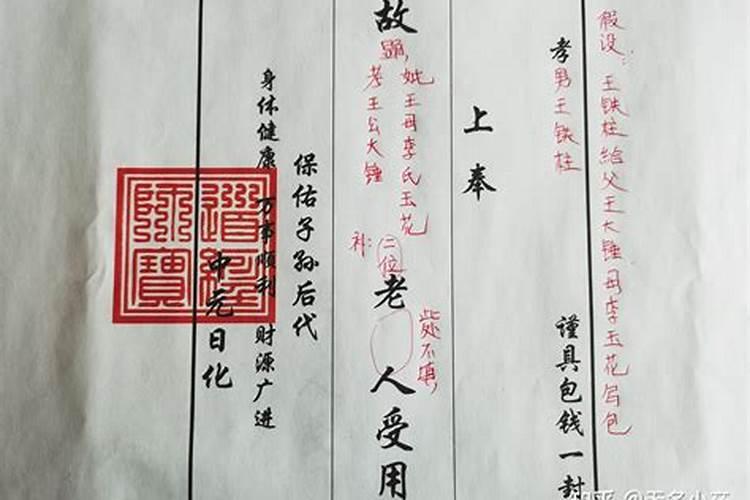 假设:王铁柱给父王大锤母李玉花写包
孝男王铁柱 谨具包钱一封
上奉
故
显
妣王母李氏玉花
考王公大锤
补:二位
老人受用
此处不填
保佑子孙后代
身体健康 万事顺利 财源广进
中元日化
道經師寶
知乎